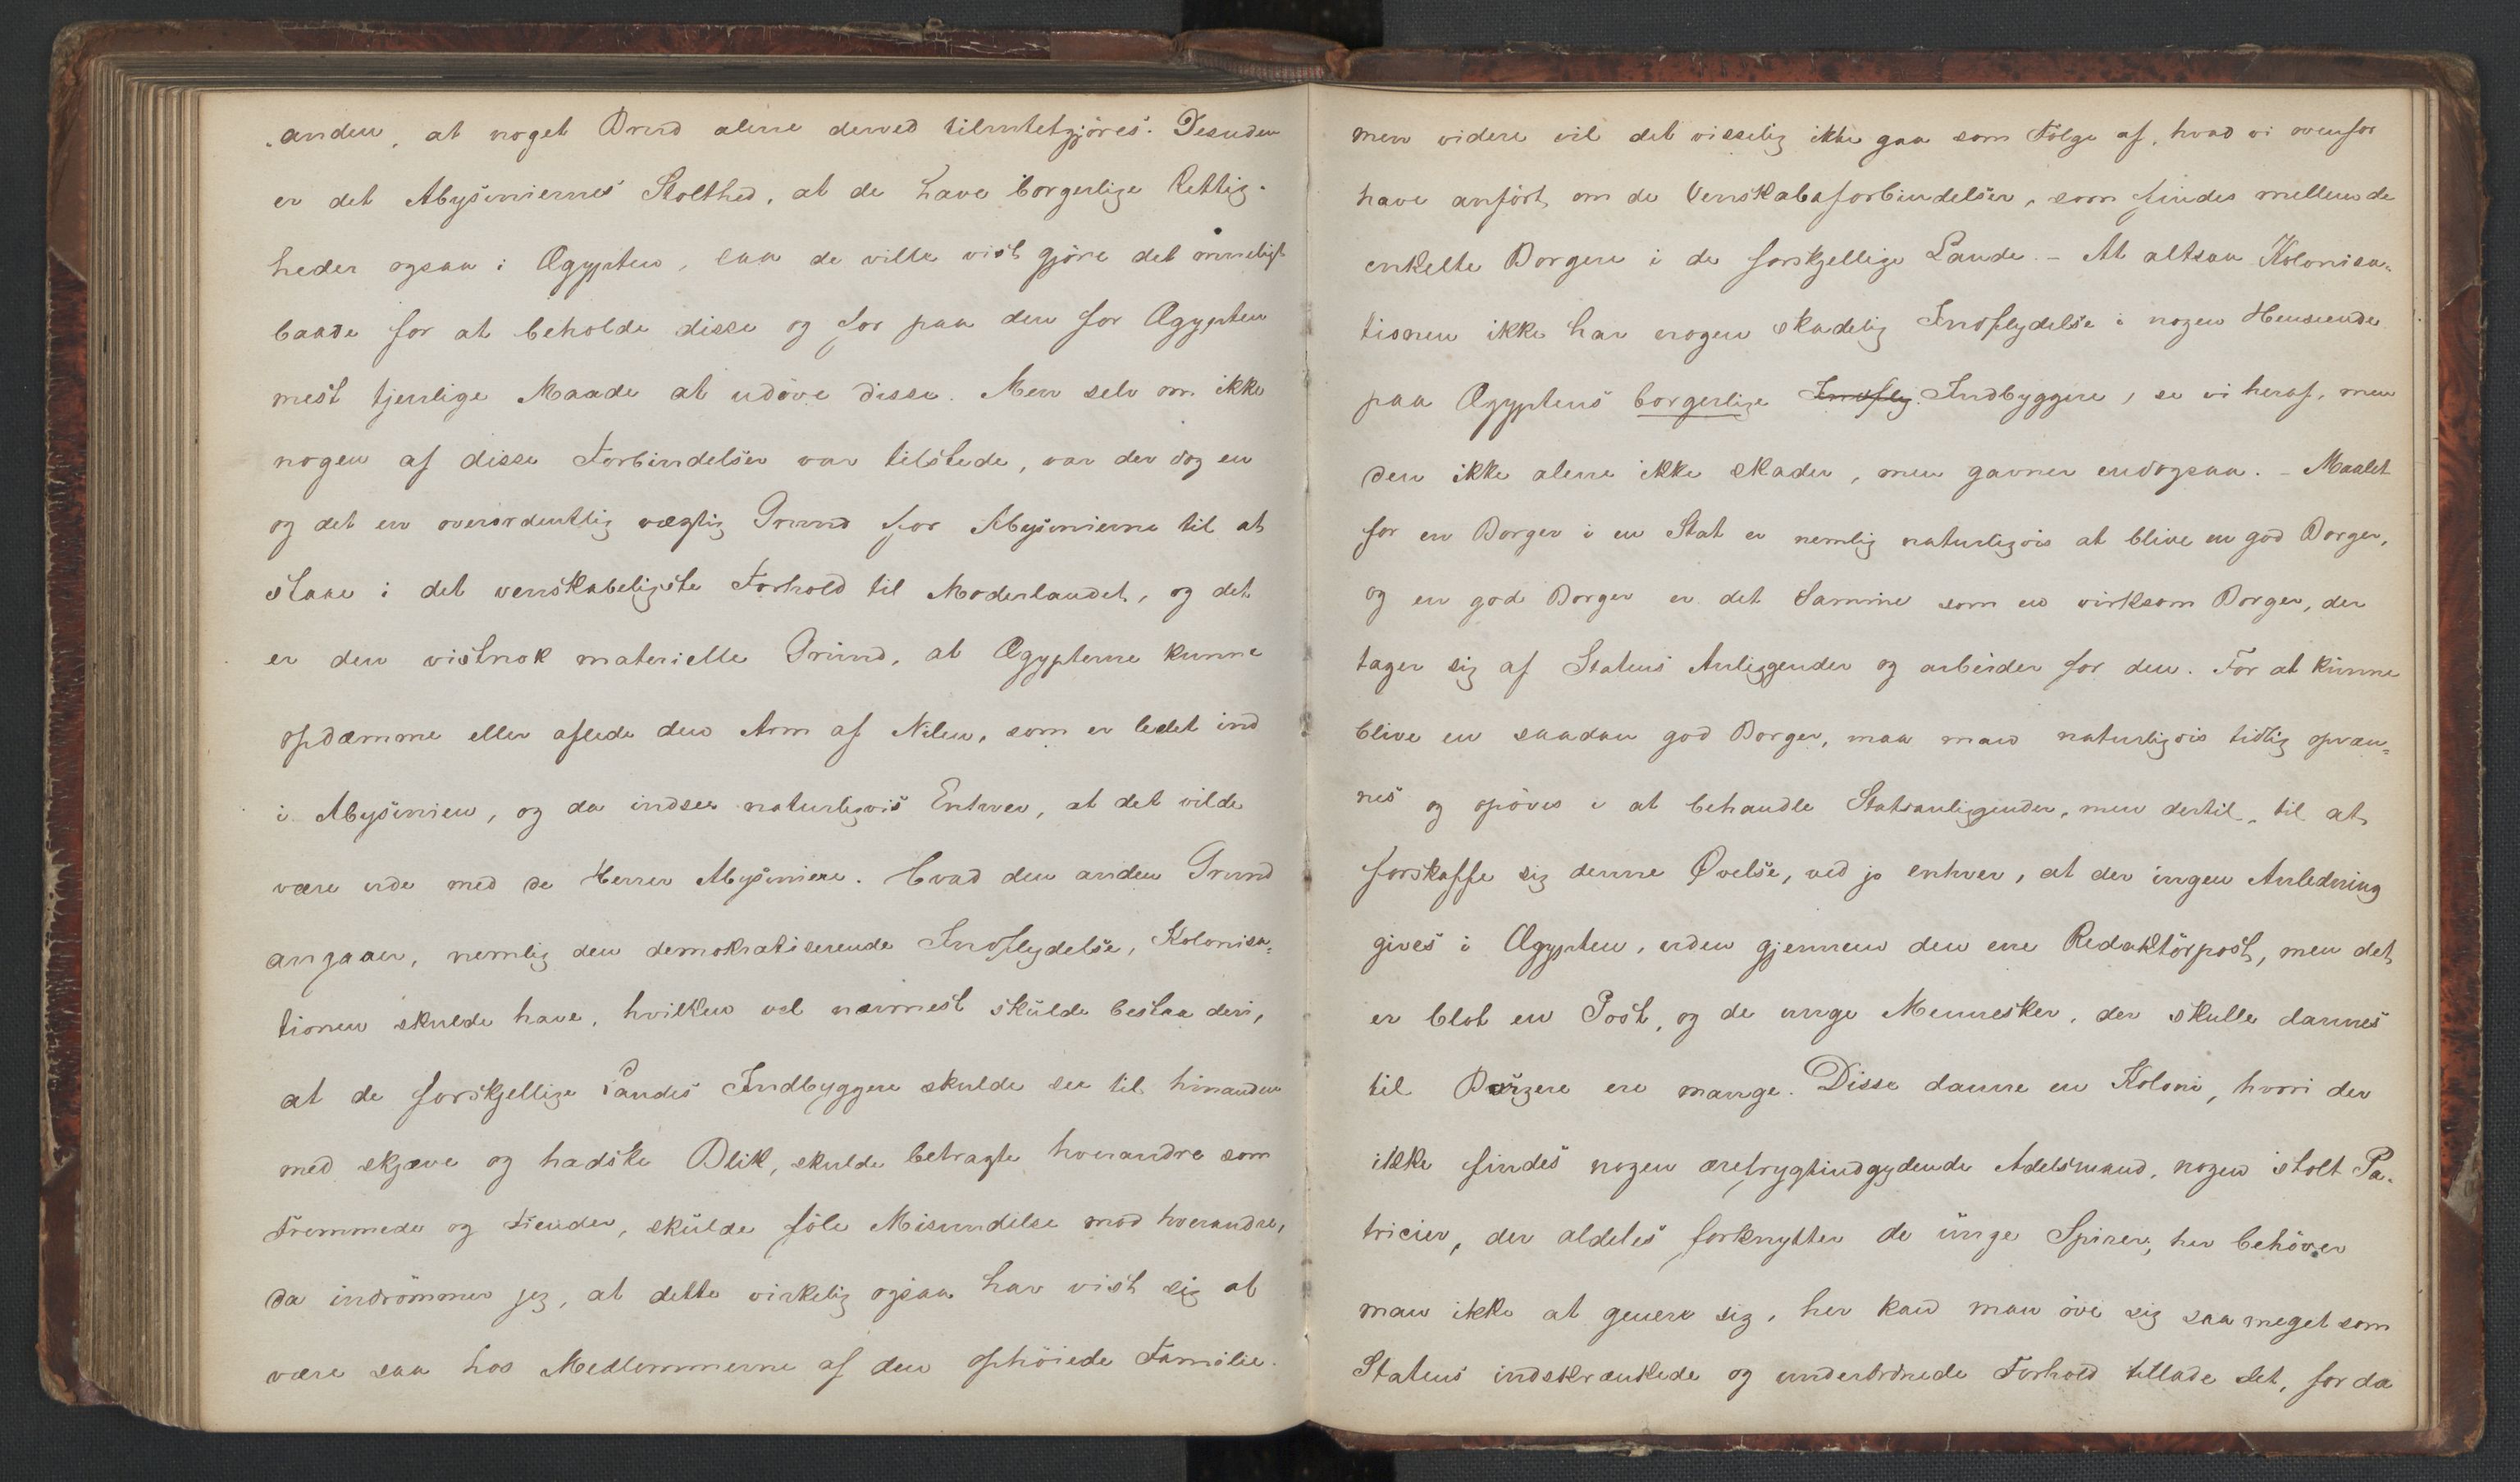 anden, at noget Baand alene derved tilintetgjöres. Desuden
er det Abysiniernes Stolthed, at de have borgerlige Rettig-
heder ogsaa i Ægypten, saa de ville vist gjöre det
baade for at beholde disse og for paa den for Ægypten
mest tjenlige Maade at udöve disse. Men selv om ikke
nogen af disse Forbindelser var tilstede, var der dog en
og det en overordentlig vægtig Grund for Abysinierne til at
staae i det venskabeligste Forhold til Moderlandet, og det
er den vistnok materielle Grund, at Ægypterne kunne
opdæmme eller aflede den Arm af Nilen, som er ledet ind
i Abysinien, og da indsee naturligvis Enhver, at det vilde
være ude med de Herrer Abysiniere. Hvad den anden Grund
angaaer, nemlig den demokratiserende Indflydelse, Kolonisa=
tionen skulde have, hvilken vel nærmest skulde bestaa deri,
at de forskjellige Landes Indbyggere skulde see til hinanden
med skjæve og hadske Blik, skulde betragte hverandre som
Fremmede og Fiender, skulde föle Misundelse mod hverandre,
da indrömmer jeg, at dette virkelig ogsaa har vist sig at
være saa hos Medlemmerne af den ophöiede Familie.
men videre vil det visselig ikke gaa som Fölge af, hvad vi ovenfor
have anfört om de Venskabsforbindelser, som findes mellem de
enkelte Borgere i de forskjellige Lande. - At altsaa Kolonisa=
tionen ikke har nogen skadelig Indflydelse i nogen Henseende
paa Ægyptens borgerlige Indfly. Indbyggere, se vi heraf, men
den ikke alene ikke skader, men gavner endogsaa. - Maalet
for en Borger i en Stat er nemlig naturligvis at blive en god Borger,
og en god Borger er det Samme som en virksom Borger, der
tager sig af Statens Anliggender og arbeider for den. For at kunne
blive en saadan god Borger, maa man naturligvis tidlig opvæn=
nes og opöves i at behandle Statsanliggender, men dertil, til at
forskaffe sig denne Øvelse, ved jo enhver, at der ingen Anledning
gives i Ægypten, uden gjennem den ene Redaktörpost, men det
er blot en Post, og de unge Mennesker, der skulle dannes
til Borgere ere mange. Disse danne en Koloni, hvori der
ikke findes nogen ærefrygtindgydende Adelsmand, nogen stolt Pa-
tricier, der aldeles forknytter de unge Spirer, her behöver
man ikke at genere sig, her kan man öve sig saa meget som
Statens indskrænkede og underordnede Forhold tillade det, for da